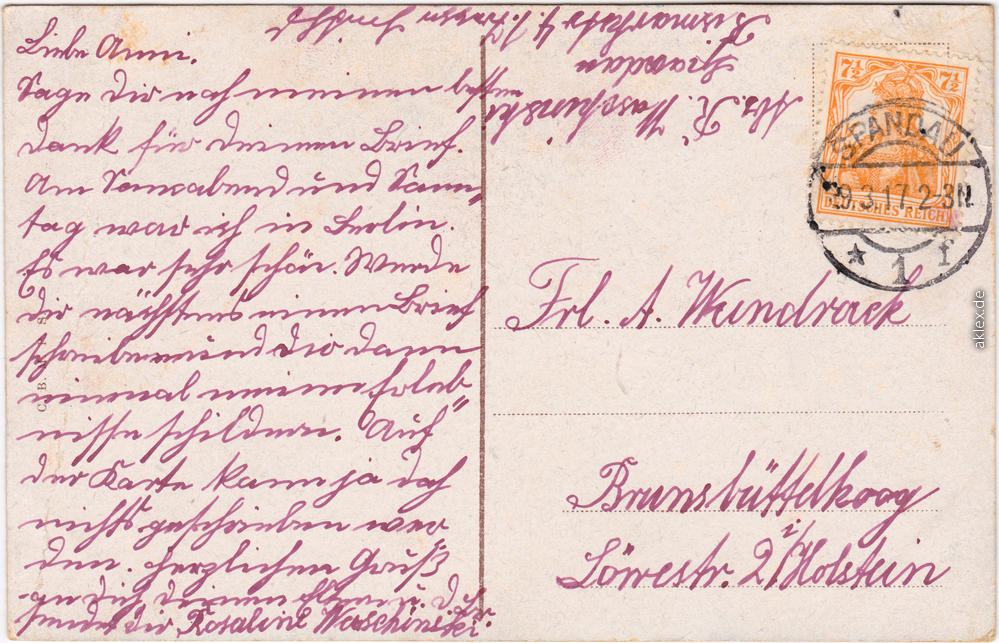 Liebe Anni.
Sage dir noch meinen besten
dank für deinen Brief.
Am Sonnabend und Sonn„
tag war ich in Berlin.
Es war sehr schön. Werde
dir nächstens einen Brief
schreiben und dir dann
einmal meine Erleb„
nisse schildern. Auf
der Karte kann ja doch
nichts geschrieben wer„
den. herzlichen Gruß
an dich deinen Eltern u.
sendet dir Rosaline Waschinski.
Abs. R. Waschinski
Spandau
Bismarkstr 4.
7½ 7½
DEUTSCHES REICH
SPANDAU
9.3.17.2-3N.
* 1 f
Frl. A. Wundrack
Brunsbüttelkoog
i/
Löwestr. 2 Holstein
aklex.de